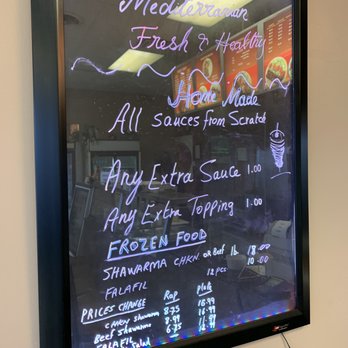 Mediterranean
Fresh & Healthy
Home Made
All sauces from Scratch
Any Extra Sauce 1.00
Any Extra Topping 1.00
FROZEN FOOD
SHAWARMA CHKN or Beef lb 18.00
FALAFIL 12 pcs. 10.00
PRICES CHANGE Rap Plate
CHKN Shawarma 8.75 18.99
Beef Shawarma 8.99
FALAFIL 6.75
Salad